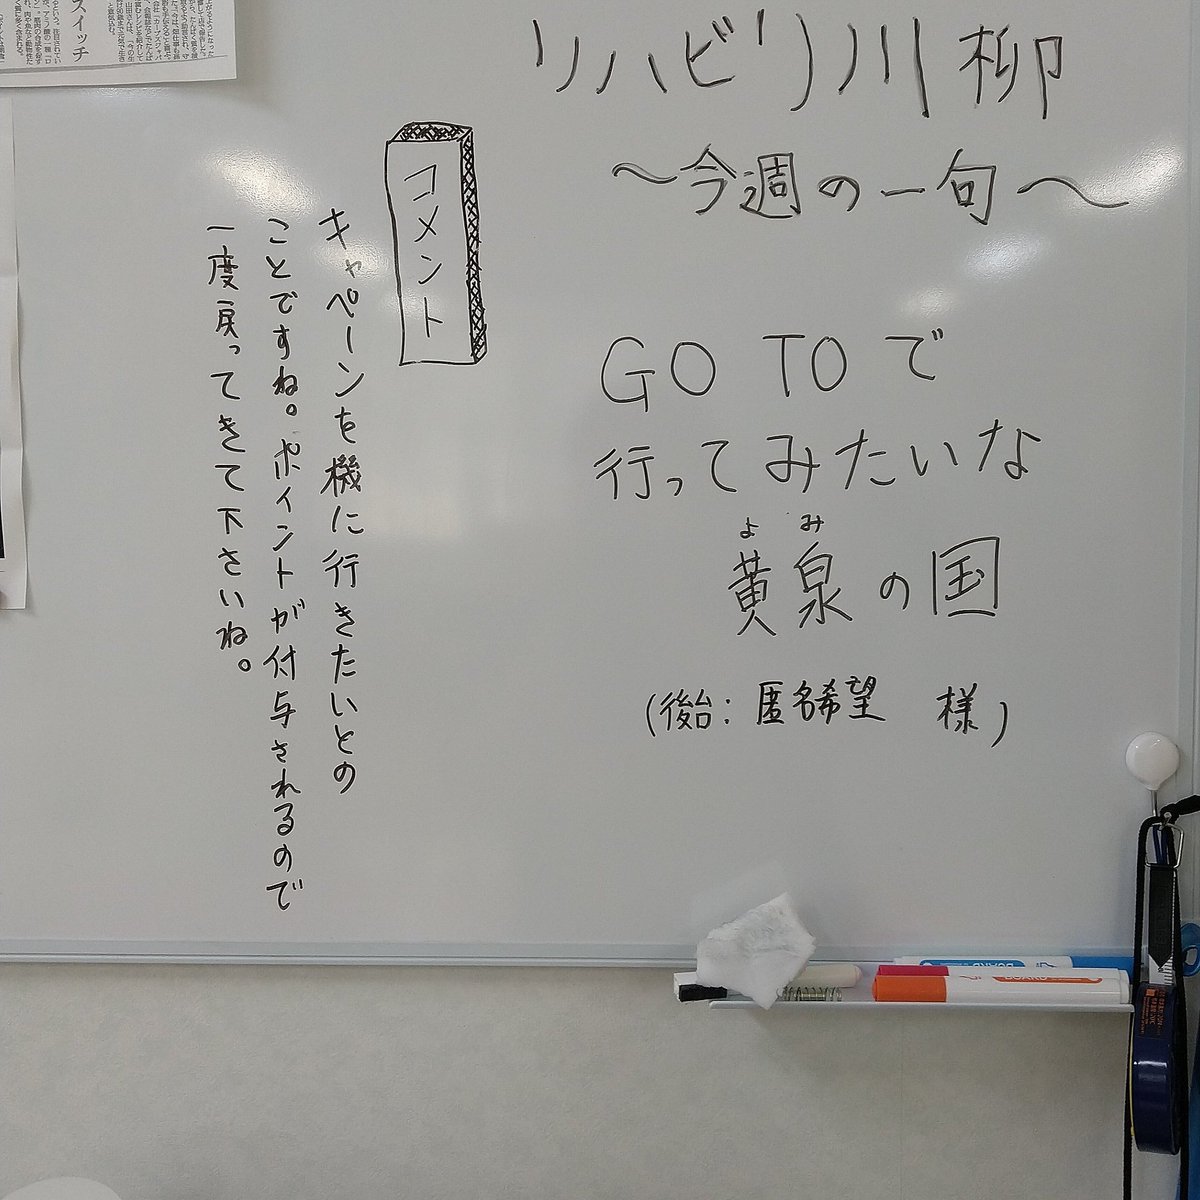 リハビリ川柳
〜今週の一句〜
GO TOで
行ってみたいな
よみ
黄泉の国
(後台：匿名希望 様)
コメント
キャペーンを機に行きたいとの
ことですね。ポイントが付与されるので
一度戻ってきて下さいね。
スイッチ